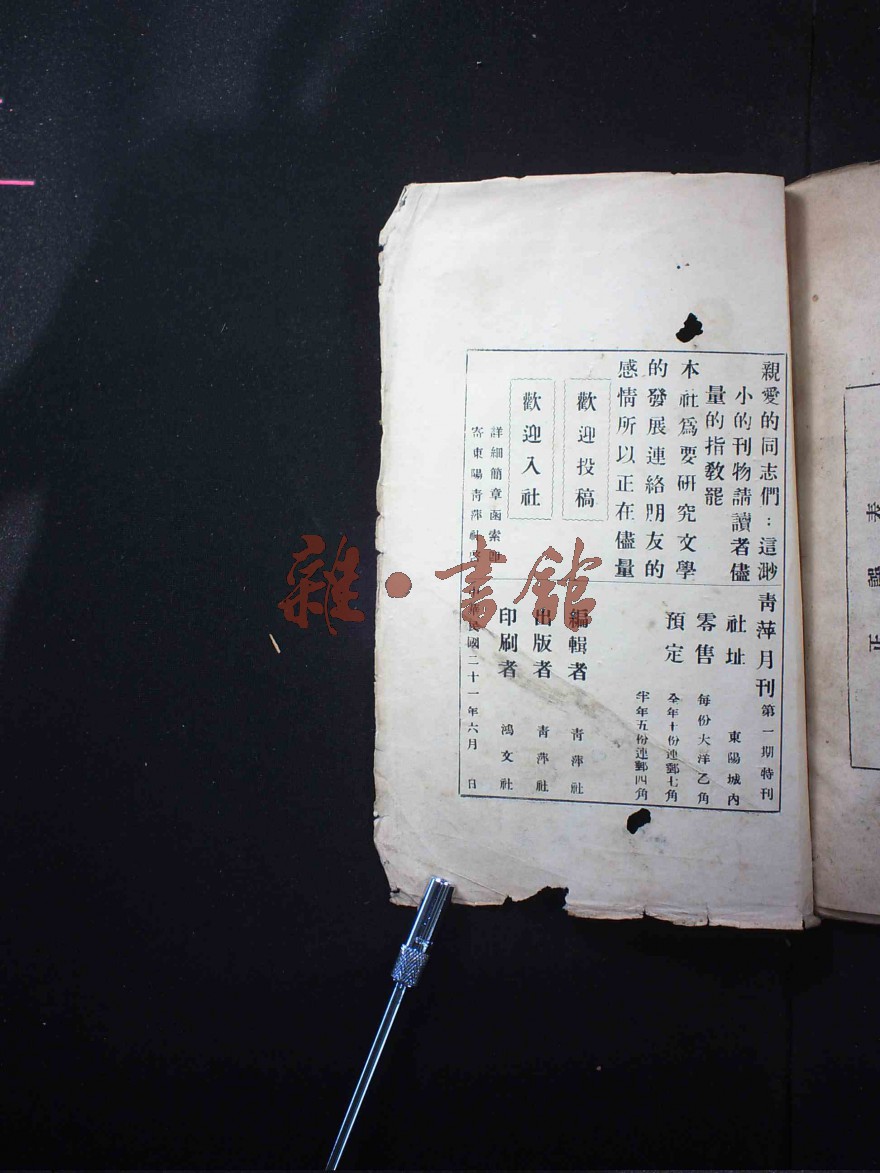 親愛的同志們：這渺
小的刊物請讀者儘
量的指教罷
本社爲要研究文學
的發展連絡朋友的
感情所以正在儘量
歡迎投稿
歡迎入社
詳細簡章函索卽
寄東陽青萍社啓
青萍月刊第一期特刊
社址 東陽城內
零售 每份大洋乙角
預定 全年十份連郵七角
半年五份連郵四角
編輯者 青萍社
出版者 青萍社
印刷者 鴻文社
中華民國二十一年六月 日
雜·書館
表
誤
正